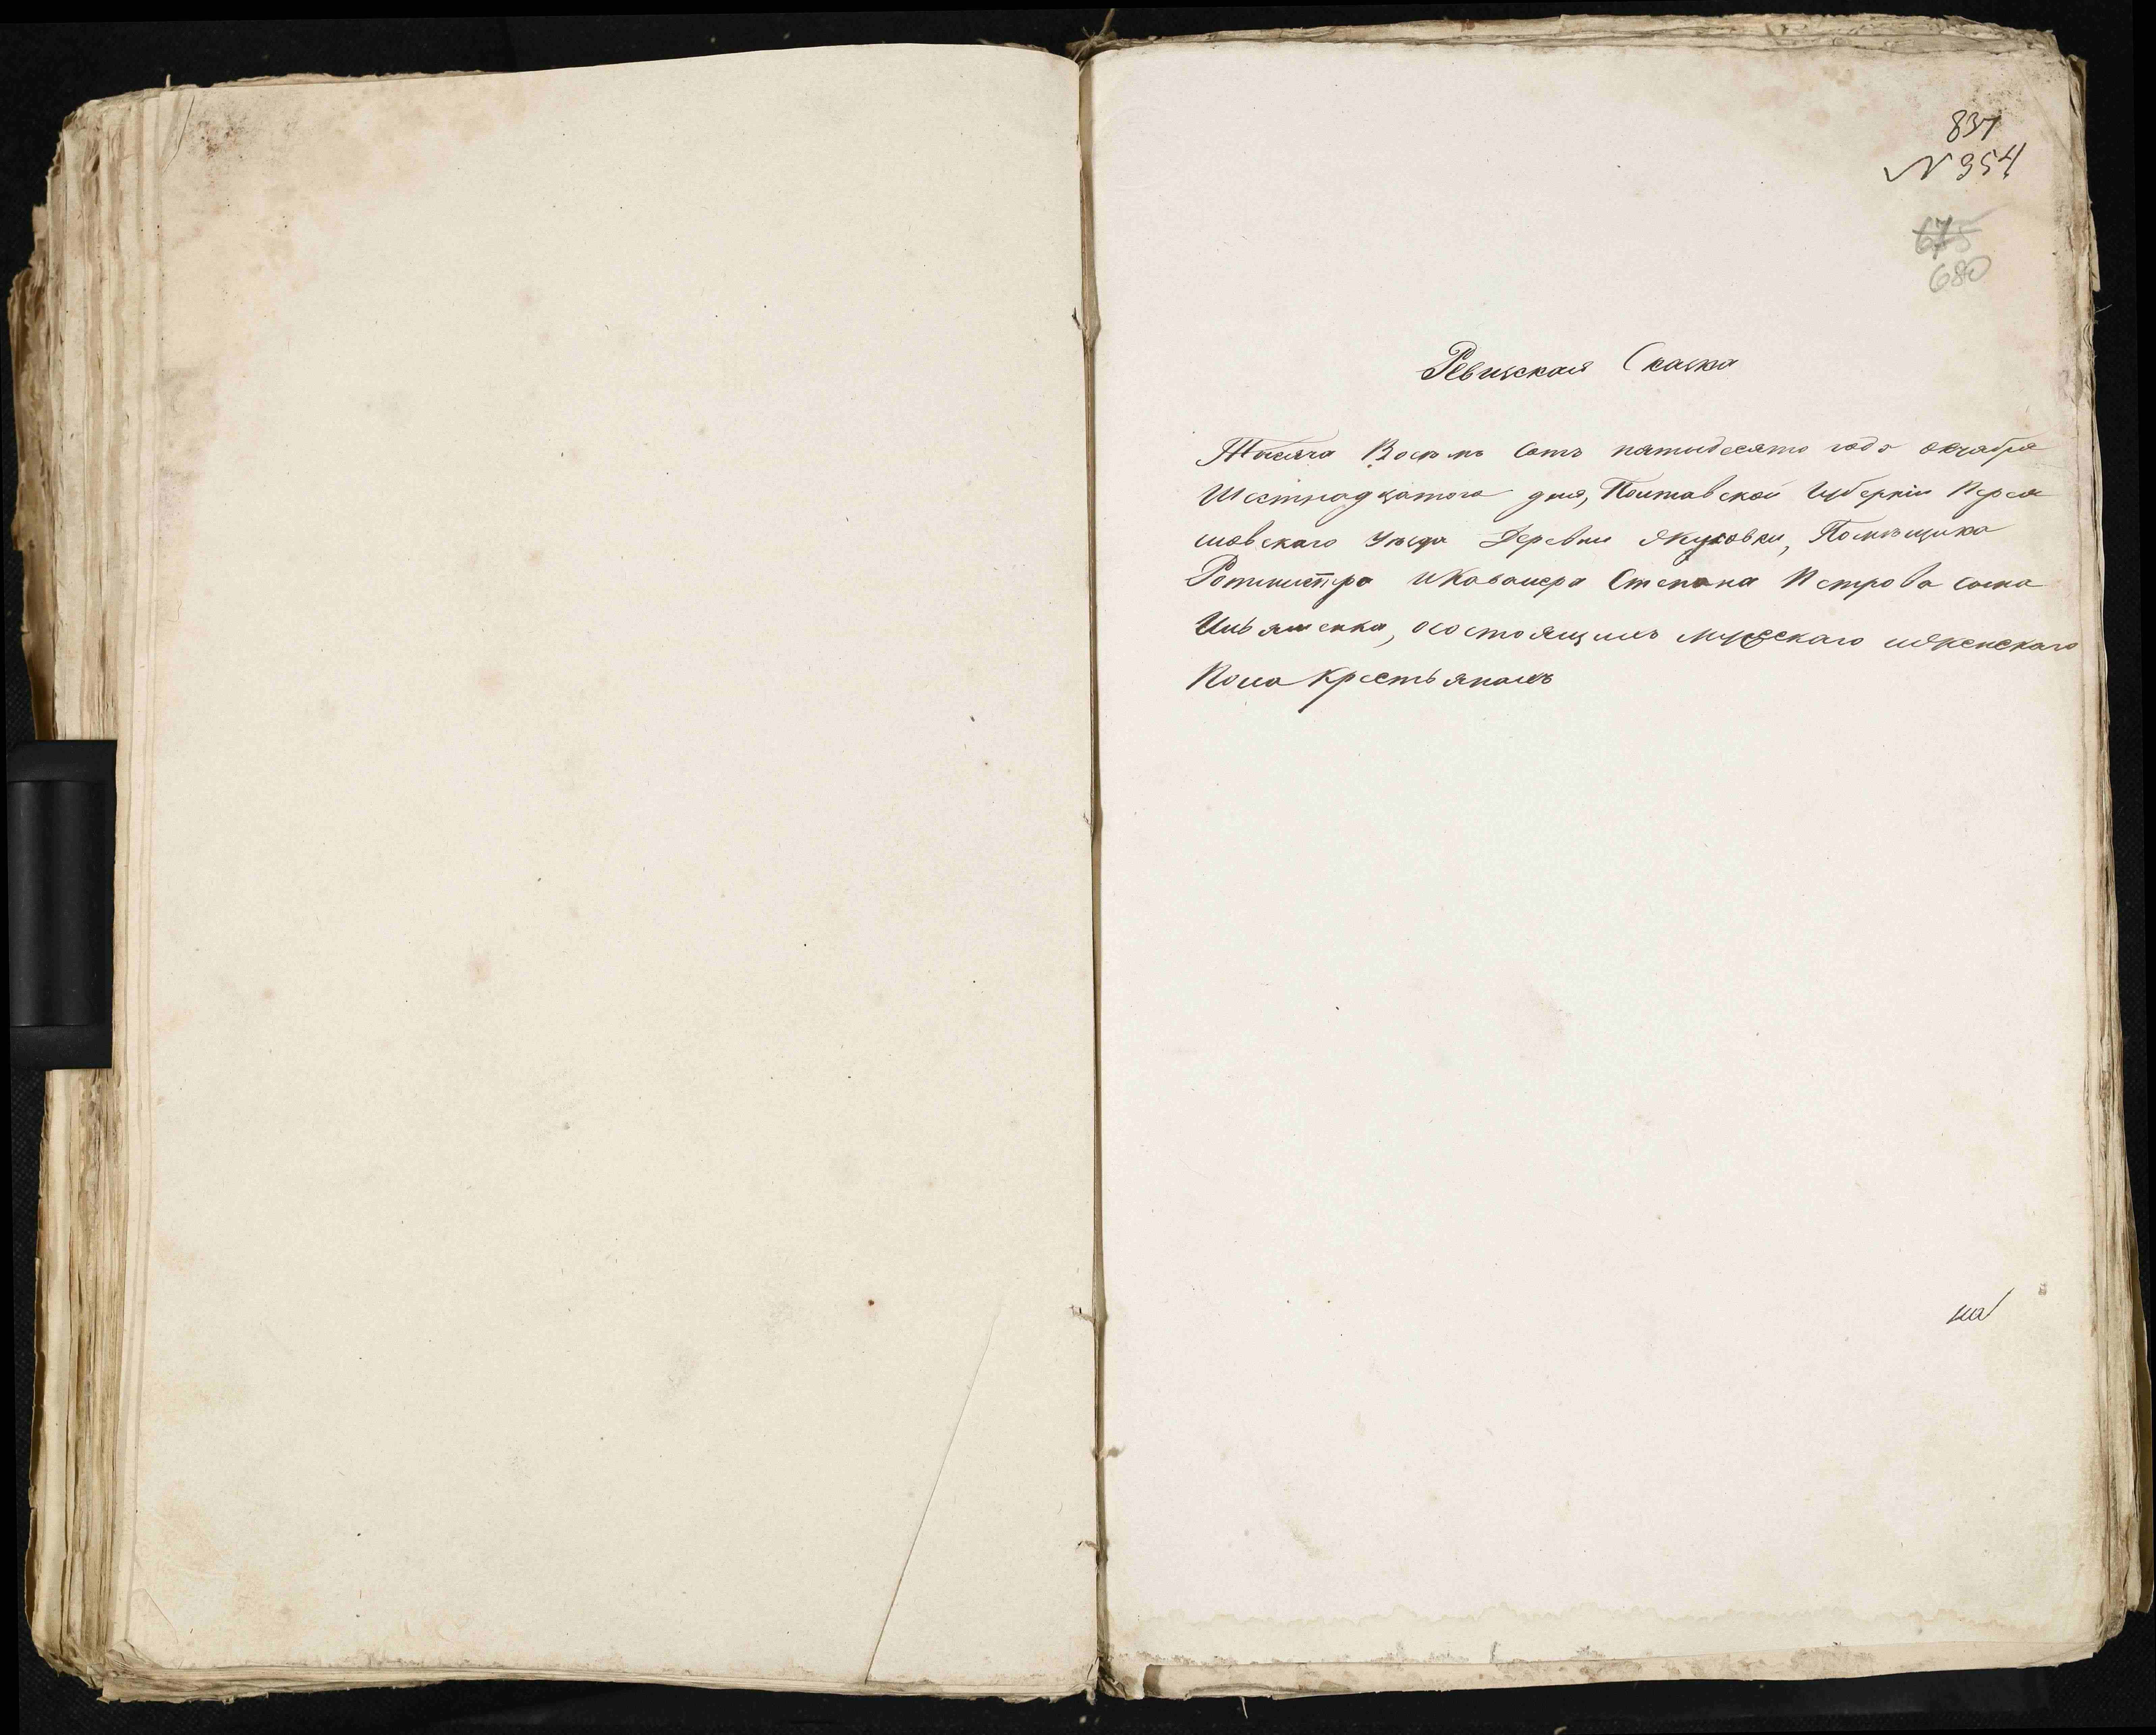 837
N 354
675
680
Ревизская Сказка
Тысяча Восемь Сотъ пятидесято года октября
Шестнадцатого дня, Полтавской Губерніи Перея
словскаго Уезда Деревни Якусовки, Помѣщика
Ротмистра и Кавалера Степана Петрова сына
Ильяшенка, осостоящихъ мужескаго иженскаго
Пола Крестьянахъ